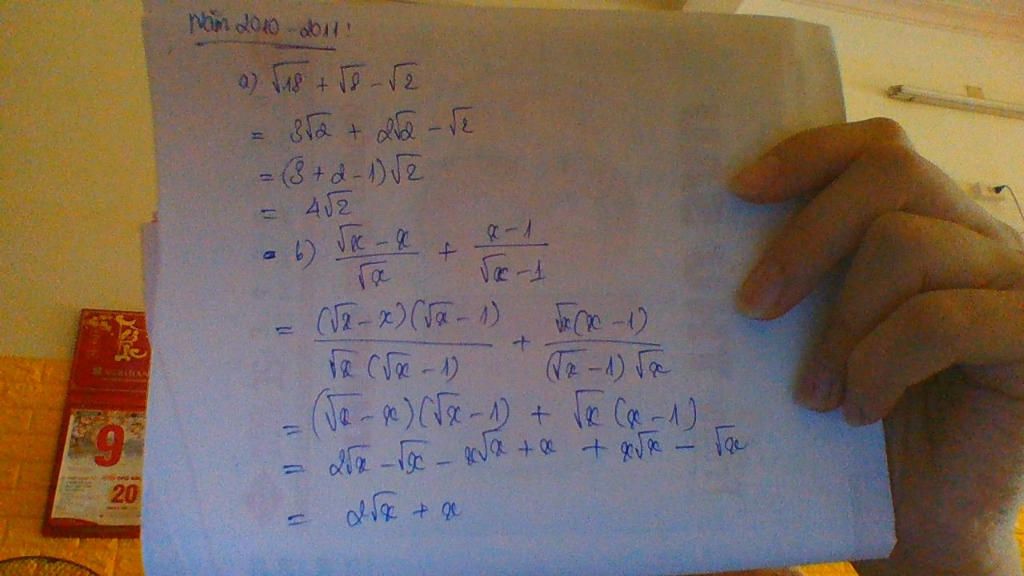 Năm 2010 - 2011:
a) √18 + √8 - √2
= 3√2 + 2√2 - √2
= (3 + 2 - 1)√2
= 4√2
b) (√x - x)/√x + (x - 1)/(√x - 1)
= (√x - x)(√x - 1)/√x(√x - 1) + √x(x - 1)/(√x - 1)√x
= (√x - x)(√x - 1) + √x(x - 1)
= 2√x - √x - x√x + x + x√x - √x
= 2√x + x
9
20